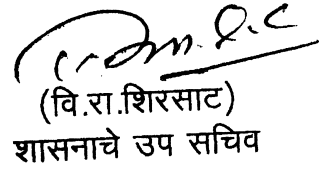 (वि.रा.शिरसाट)
शासनाचे उप सचिव